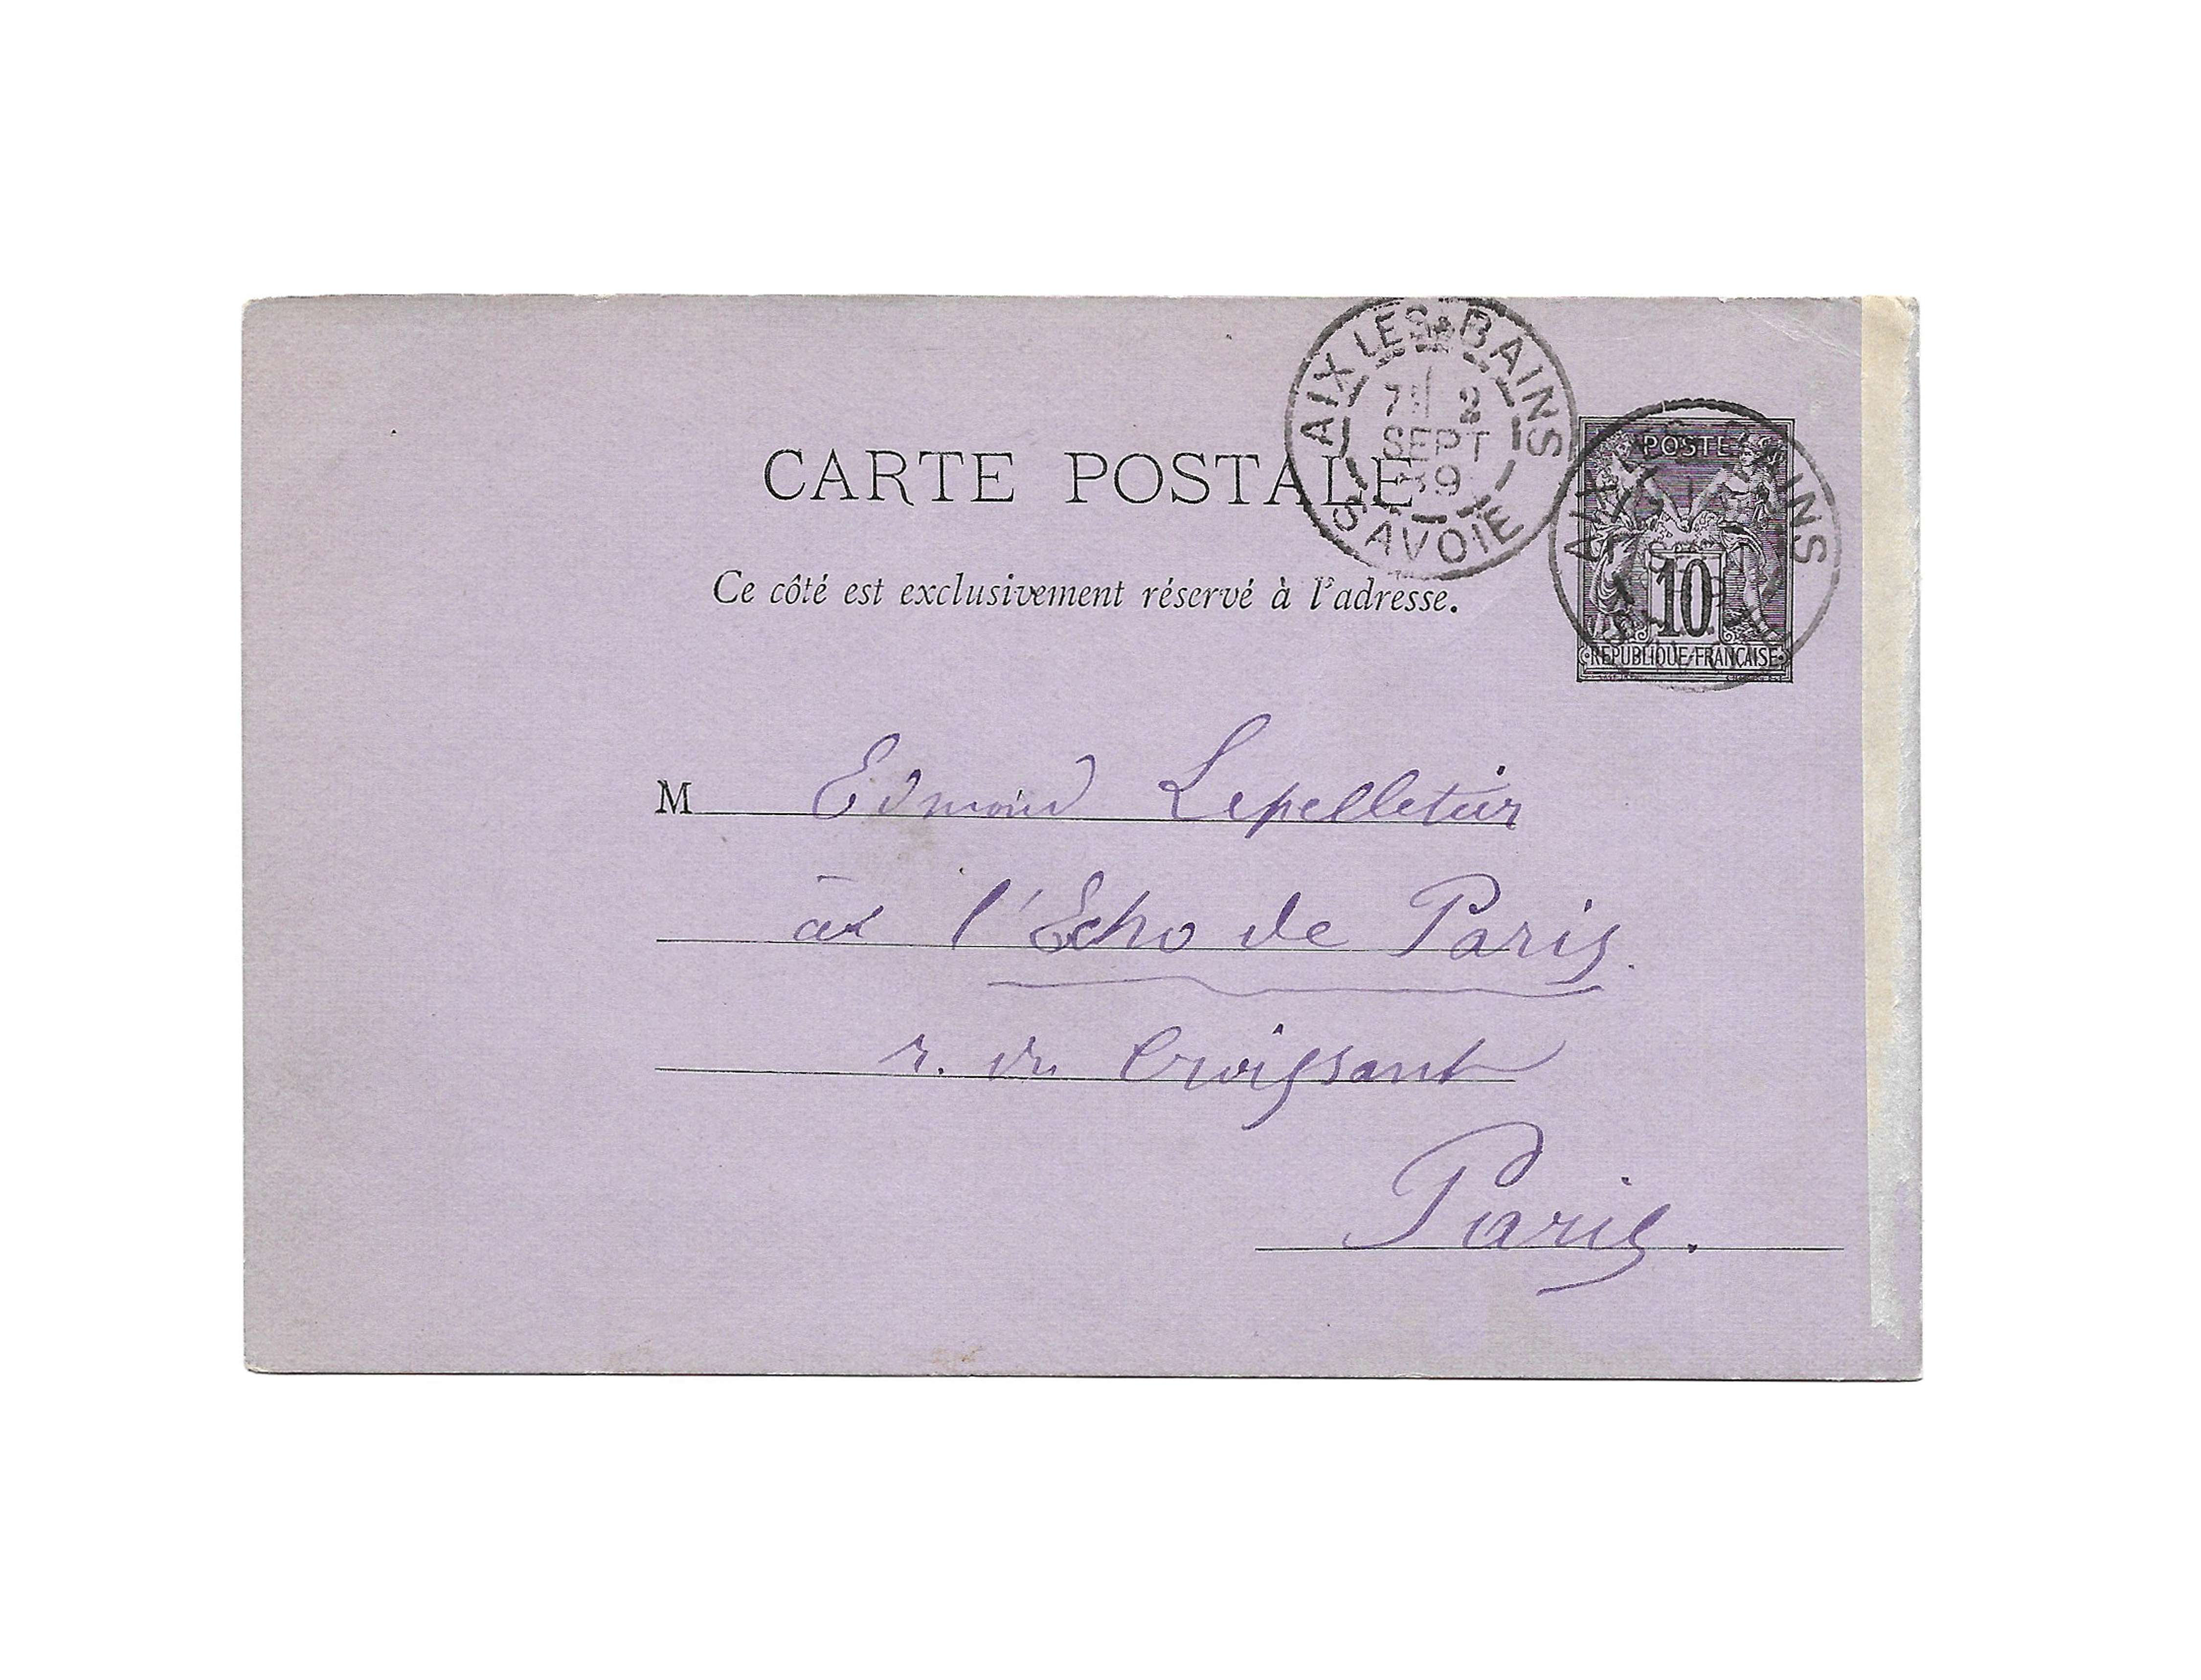 AIX LES BAINS
7E 2
SEPT
89
SAVOIE
CARTE POSTALE
POSTE
10
REPUBLIQUE FRANÇAISE
Ce côté est exclusivement réservé à l'adresse.
M Edmond Lepelletier
à l'Echo de Paris.
r. du Croissant
Paris.